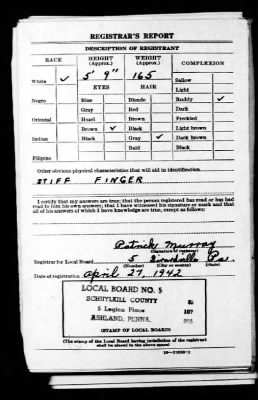 REGISTRAR'S REPORT
DESCRIPTION OF REGISTRANT
RACE HEIGHT (Approx.) WEIGHT (Approx.) COMPLEXION
White ✓ 5' 9" 165 Sallow
EYES HAIR Light
Negro Blue Blonde Ruddy ✓
Gray Red Dark
Oriental Hazel Brown Freckled
Brown ✓ Black Light brown
Indian Black Gray ✓ Dark brown
Bald Black
Filipino
Other obvious physical characteristics that will aid in identification
STIFF FINGER
I certify that my answers are true; that the person registered has read or has had
read to him his own answers; that I have witnessed his signature or mark and that
all of his answers of which I have knowledge are true, except as follows:
Patrick Murray
(Signature of registrar)
Registrar for Local Board 5 Girardville Pa.
(Number) (City or county) (State)
Date of registration April 27, 1942
LOCAL BOARD NO. 5
SCHUYLKILL COUNTY
5 Legion Place 107
ASHLAND, PENNA.
(STAMP OF LOCAL BOARD)
(The stamp of the Local Board having jurisdiction of the registrant
shall be placed in the above space)